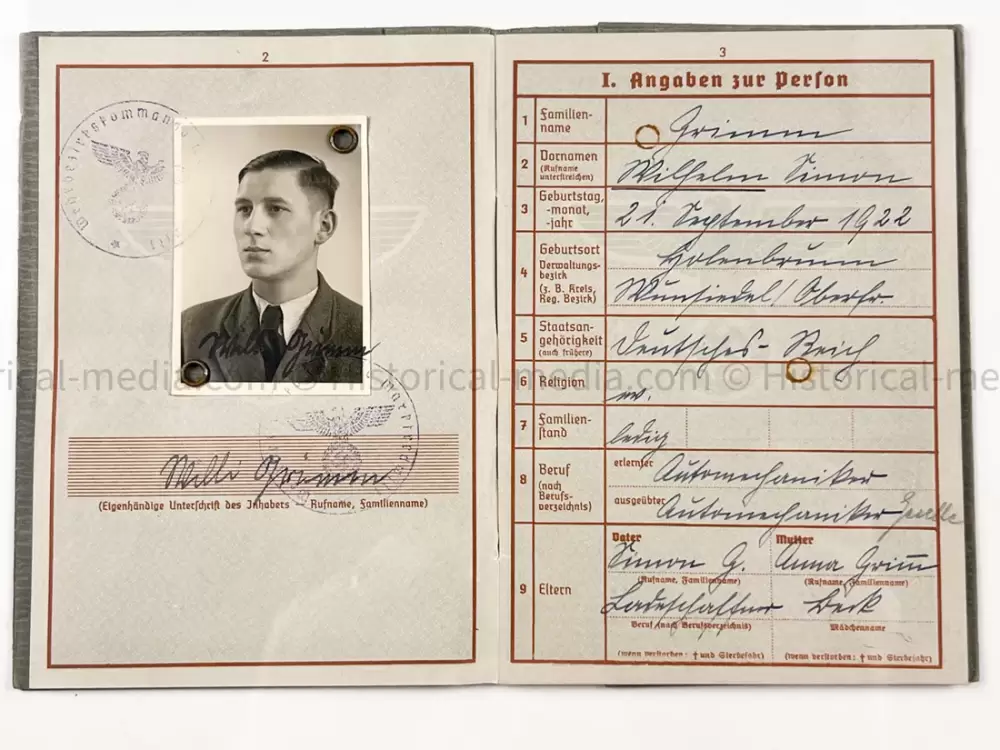 2
Wehrbezirkskommando
Willi Grimm
Willi Grimm
(Eigenhändige Unterschrift des Inhabers — Rufname, Familienname)
3
I. Angaben zur Person
1 Familien-
name
Grimm
2 Vornamen
(Rufname
unterstreichen)
Wilhelm Simon
3 Geburtstag,
-monat,
-jahr
21. September 1922
4 Geburtsort
Verwaltungs-
bezirk
(z. B. Kreis,
Reg. Bezirk)
Holenbrunn
Wunsiedel/Oberfr.
5 Staatsan-
gehörigkeit
(auch frühere)
Deutsches-Reich
6 Religion
ev.
7 Familien-
stand
ledig
8 Beruf
(nach
Berufs-
verzeichnis)
erlernter
Automechaniker
ausgeübter
Automechaniker Geselle
9 Eltern
Vater Mutter
Simon G. Anna Grim̅
(Rufname, Familienname) (Rufname, Familienname)
Ladeschaffner Beck
Beruf (nach Berufsverzeichnis) Mädchenname
(wenn verstorben: † und Sterbejahr) (wenn verstorben: † und Sterbejahr)
rical-media.com © Historical-media.com © Historical-me